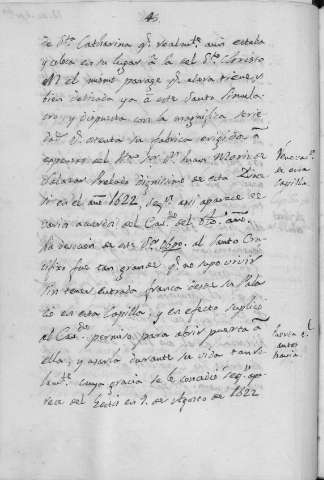 46.
de Sta. Catharina qe. realmte. aun estaba
y coloca en su lugar á la del Sto. Christo
el mismo parage qe. ahora tiene, y
bien dedicada ya á este Santo Simula-
cro, y dispuesta con la magnifica serie-
dad qe. ostenta su fabrica erigida á
expensas del Illmo. Sr. Dn. Juan
Salazar Prelado dignisimo de esta
en el año 1622, segn. assi aparece de
varios acuerdos del Cavdo. del dho. año.
La devocion de este Sr. Obpo. al Santo Cru-
cifixo fue tan grande qe. no supo vivir
sin tener entrada franca desde su Pala-
cio en esta Capilla, y en efecto suplicó
al Cavdo. permiso para abrir puerta á
ella, y usarla durante su vida
cuya gracia se le concedió segn. apa-
rece del Edicto en 9. de Agosto de 1622
de esta
Capilla
Puerta qe.
antes
havia